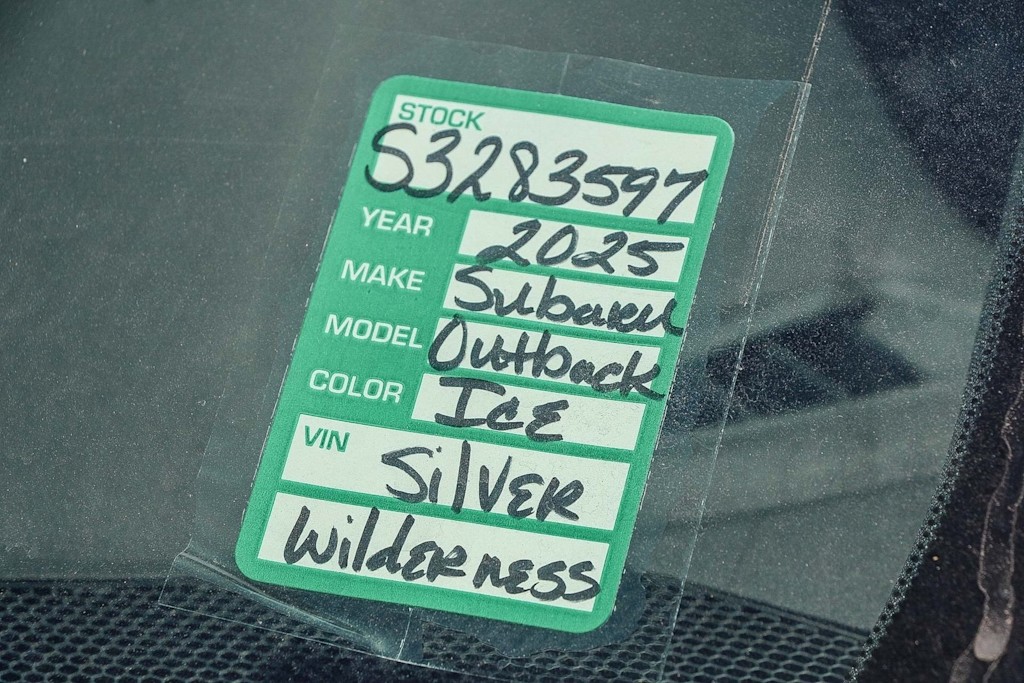 STOCK
S3283597
YEAR 2025
MAKE Subaru
MODEL Outback
COLOR ICE
VIN SilVER
WildERNESS